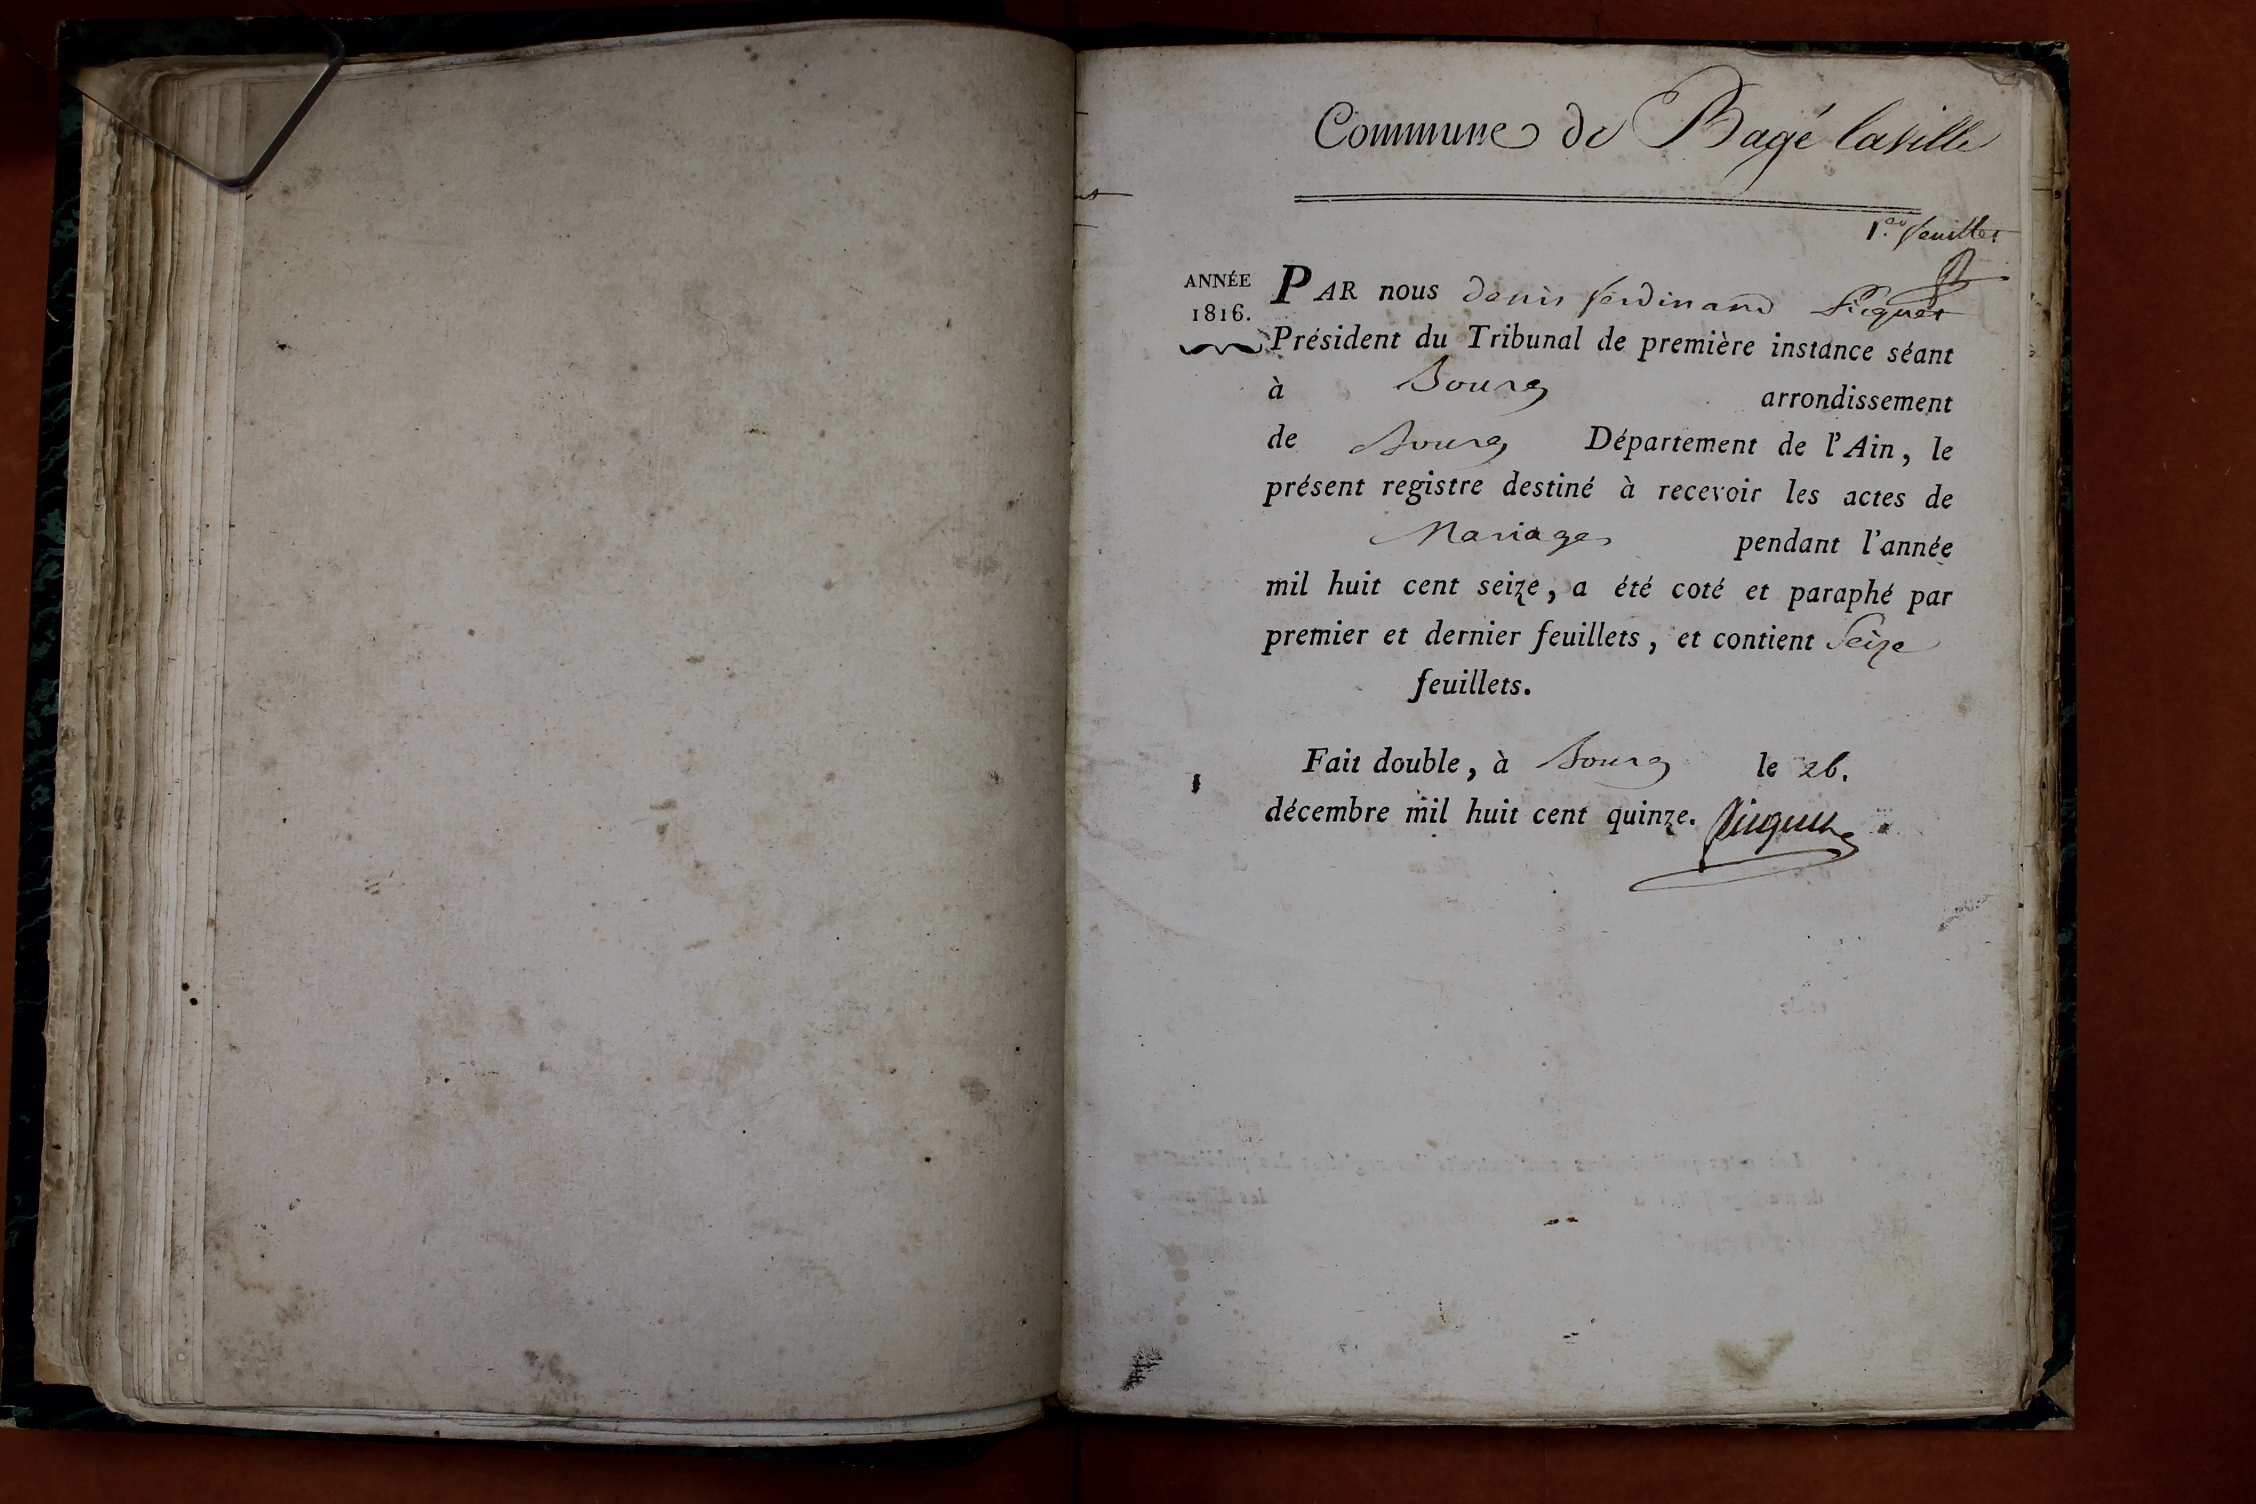 Commune de Bagé laville
1.er feuillet
ANNÉE
1816.
PAR nous denis ferdinand Picquet
Président du Tribunal de première instance séant
à Bourg arrondissement
de Bourg Département de l'Ain, le
présent registre destiné à recevoir les actes de
Mariages pendant l'année
mil huit cent seize, a été coté et paraphé par
premier et dernier feuillets, et contient Seize
feuillets.
Fait double, à Bourg le 26.
décembre mil huit cent quinze.